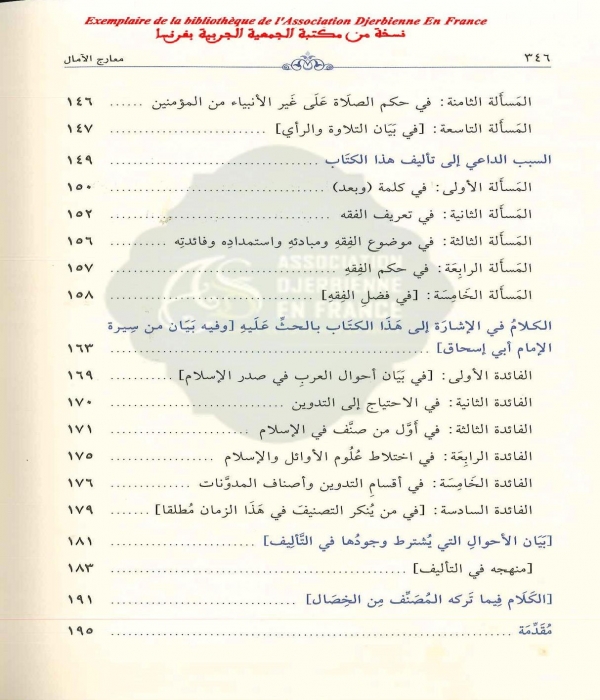 Exemplaire de la bibliothèque de l'Association Djerbienne En France
نسخة من مكتبة الجمعية الجربية بفرنسا
٣٤٦ معارج الآمال
المَسألة الثامنة: في حكم الصلَاة عَلَى غَير الأنبياء من المؤمنين ...... ١٤٦
المَسألة التاسعة: [في بيَان التلاوة والرأي] ...... ١٤٧
السبب الداعي إلى تأليف هذا الكتَاب ...... ١٤٩
المَسألة الأولى: في كلمة (وبعد) ...... ١٥٠
المَسألة الثانية: في تعريف الفقه ...... ١٥٢
المَسألة الثالثة: في موضوع الفِقهِ ومبادئهِ واستمدادِه وفائدتِه ...... ١٥٦
المَسألة الرابعَة: في حكم الفِقهِ ...... ١٥٧
المَسألة الخَامِسَة: [في فضلِ الفِقهِ] ...... ١٥٨
الكلامُ في الإشارَة إلى هَذَا الكتَاب بالحثِّ عَلَيهِ [وفيه بيَان من سِيرة
الإمام أبي إسحاق] ...... ١٦٣
الفائدة الأولى: [في بيَان أحوال العربِ في صدر الإسلام] ...... ١٦٩
الفائدة الثانية: في الاحتياج إلى التدوين ...... ١٧٠
الفائدة الثالثة: في أوَّل من صنَّف في الإسلام ...... ١٧١
الفائدة الرابعَة: في اختلاط عُلُوم الأوائل والإسلام ...... ١٧٥
الفائدة الخَامِسَة: في أقسامِ التدوين وأصناف المدوَّنات ...... ١٧٦
الفائدة السادسة: [في من يُنكر التصنيفَ في هَذَا الزمان مُطلقا] ...... ١٧٩
[بيَان الأحوالِ التي يُشترط وجودُها في التَّألِيف] ...... ١٨١
[منهجه في التأليف] ...... ١٨٣
[الكَلَام فِيما تَركه المُصَنِّف مِن الخِصَال] ...... ١٩١
مُقَدِّمَة ...... ١٩٥
ASSOCIATION
DJERBIENNE
EN FRANCE